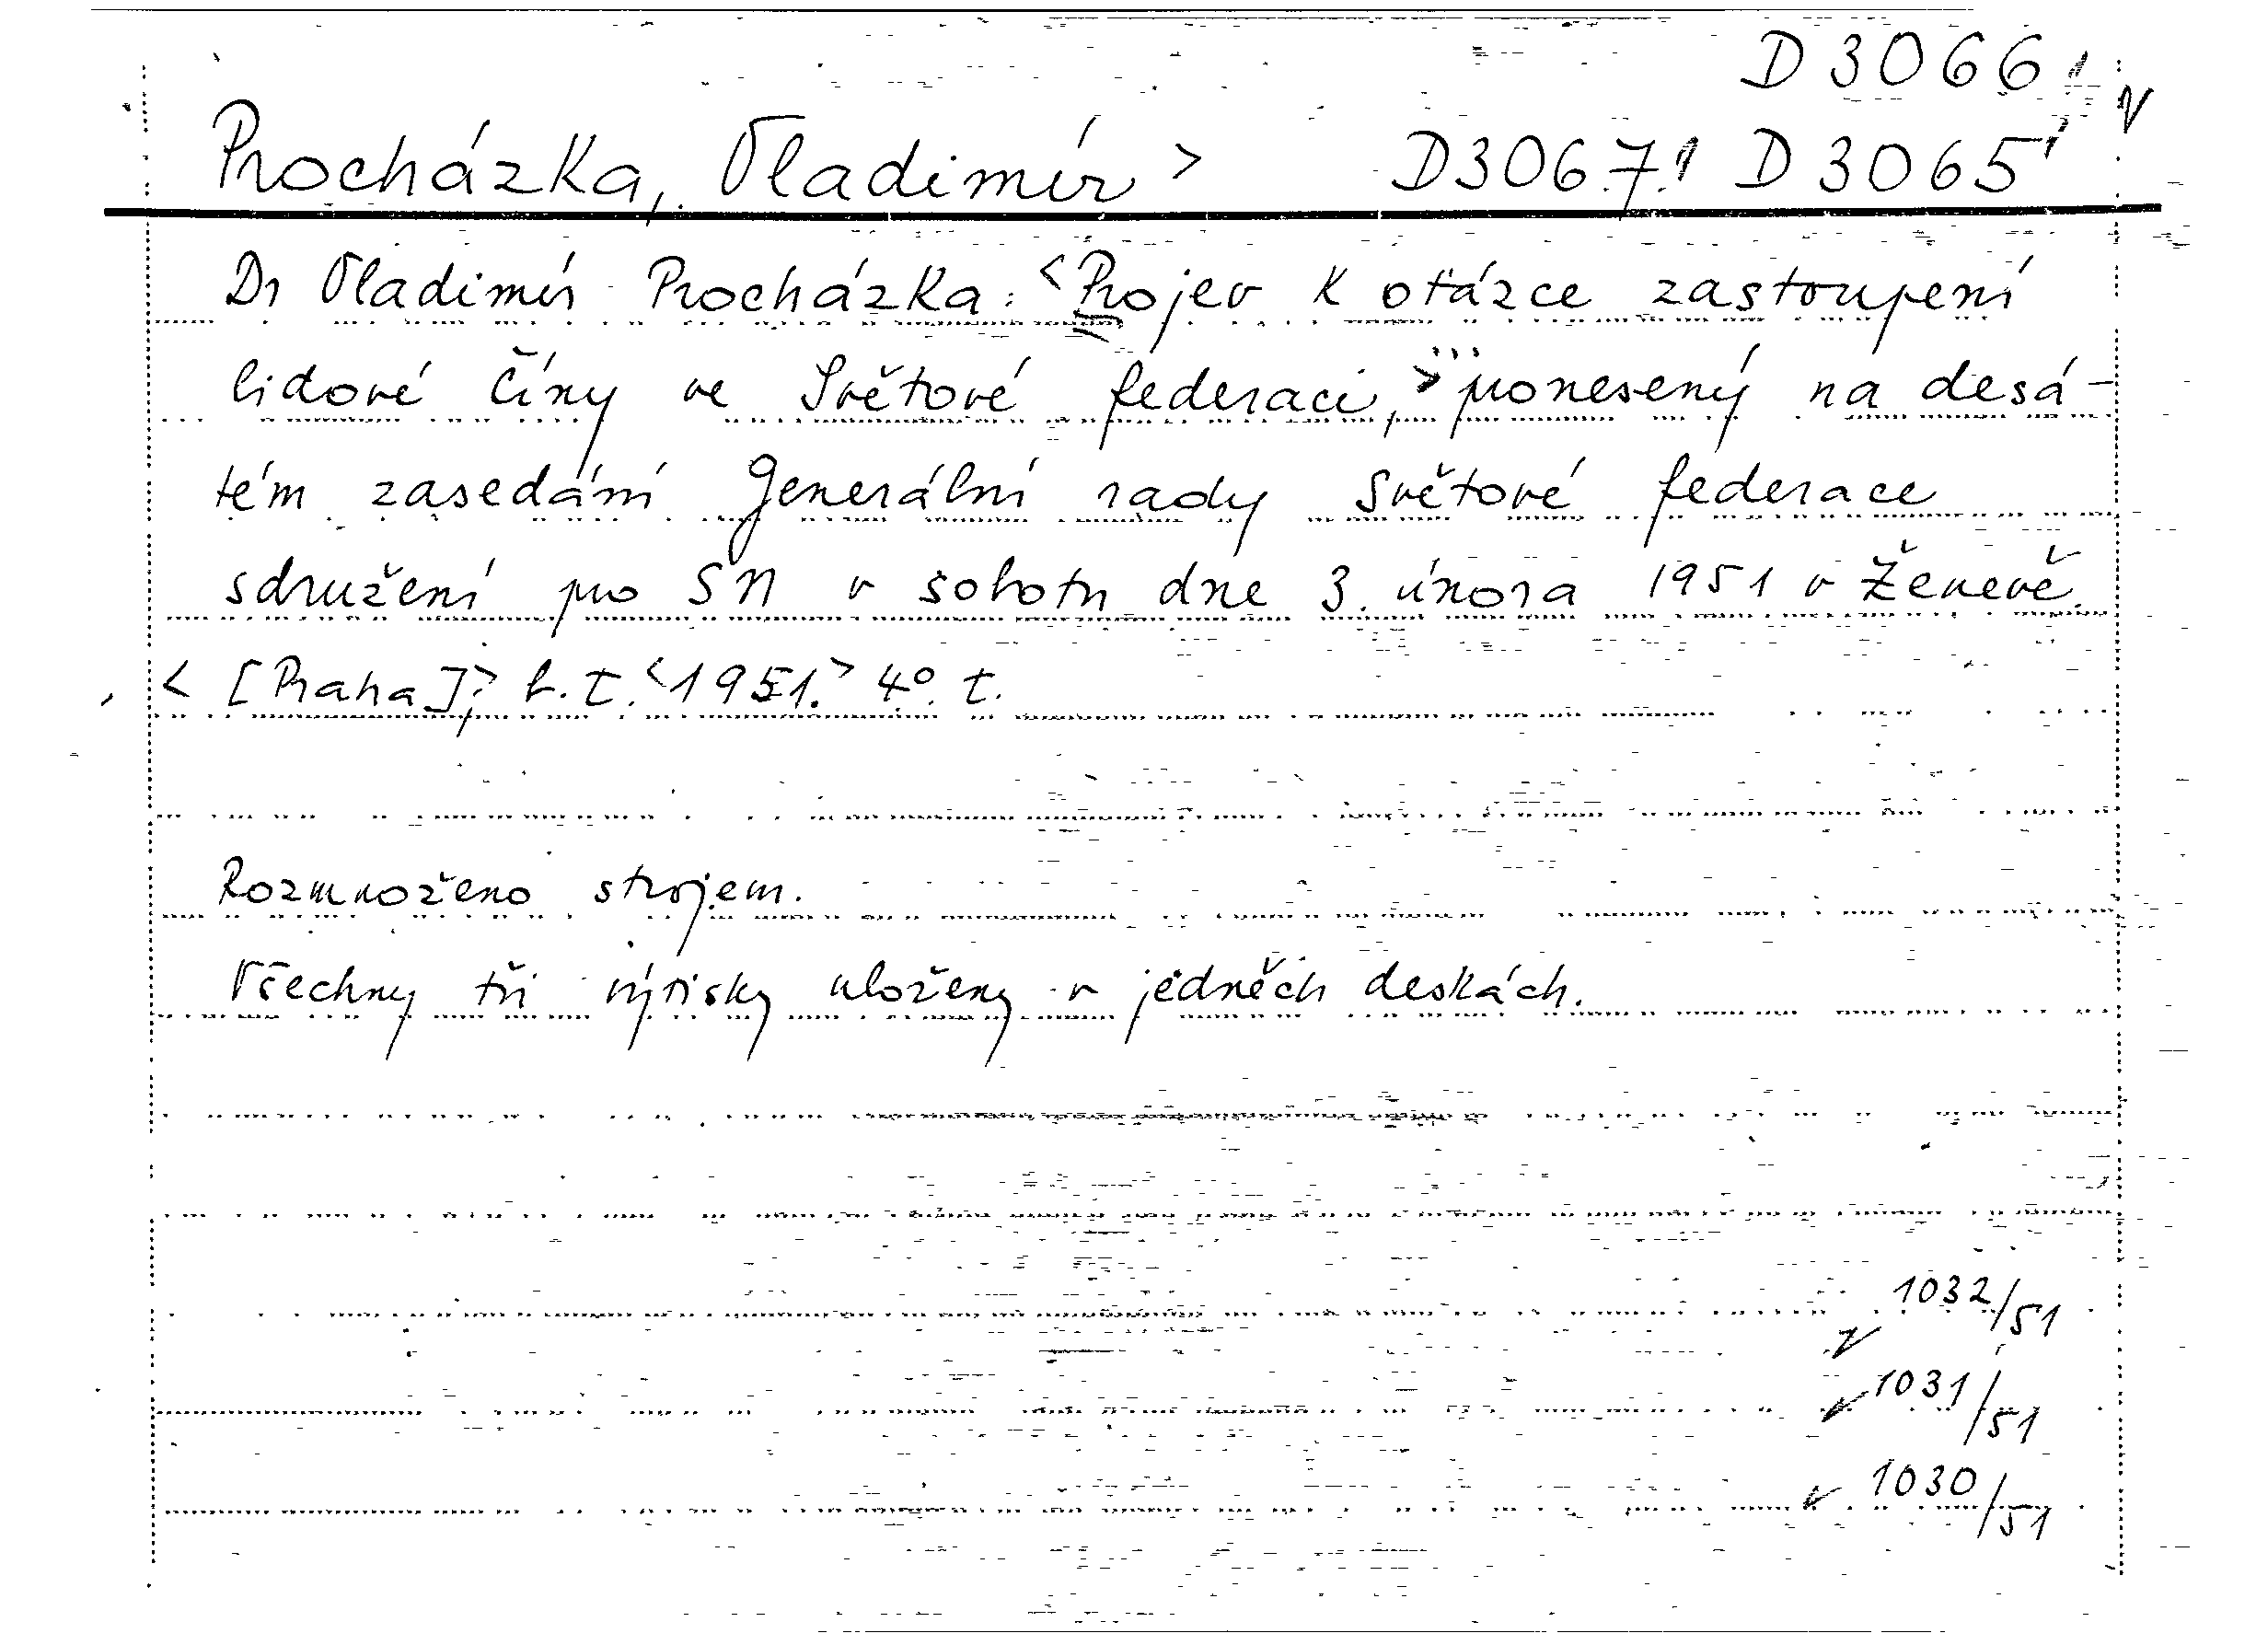 D 3066
Procházka, Vladimír > D3067 D 3065
Dr Vladimír Procházka: <Projev k otázce zastoupení
lidové Číny ve Světové federaci,> pronesený na desá-
tém zasedání Generální rady Světové federace
sdružení pro SN v sobotu dne 3. února 1951 v Ženevě.
< [Praha],> b. t. <1951.> 4°. t.
Rozmnoženo strojem.
Všechny tři výtisky uloženy v jedněch deskách.
1032/51
1031/51
1030/51